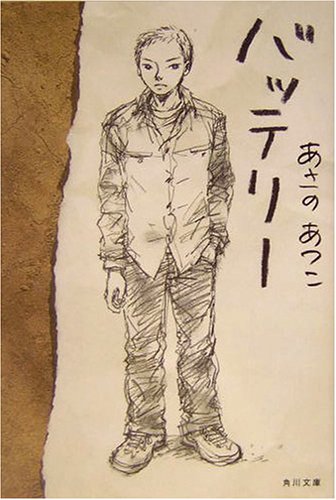 バッテリー
あさのあつこ
角川文庫